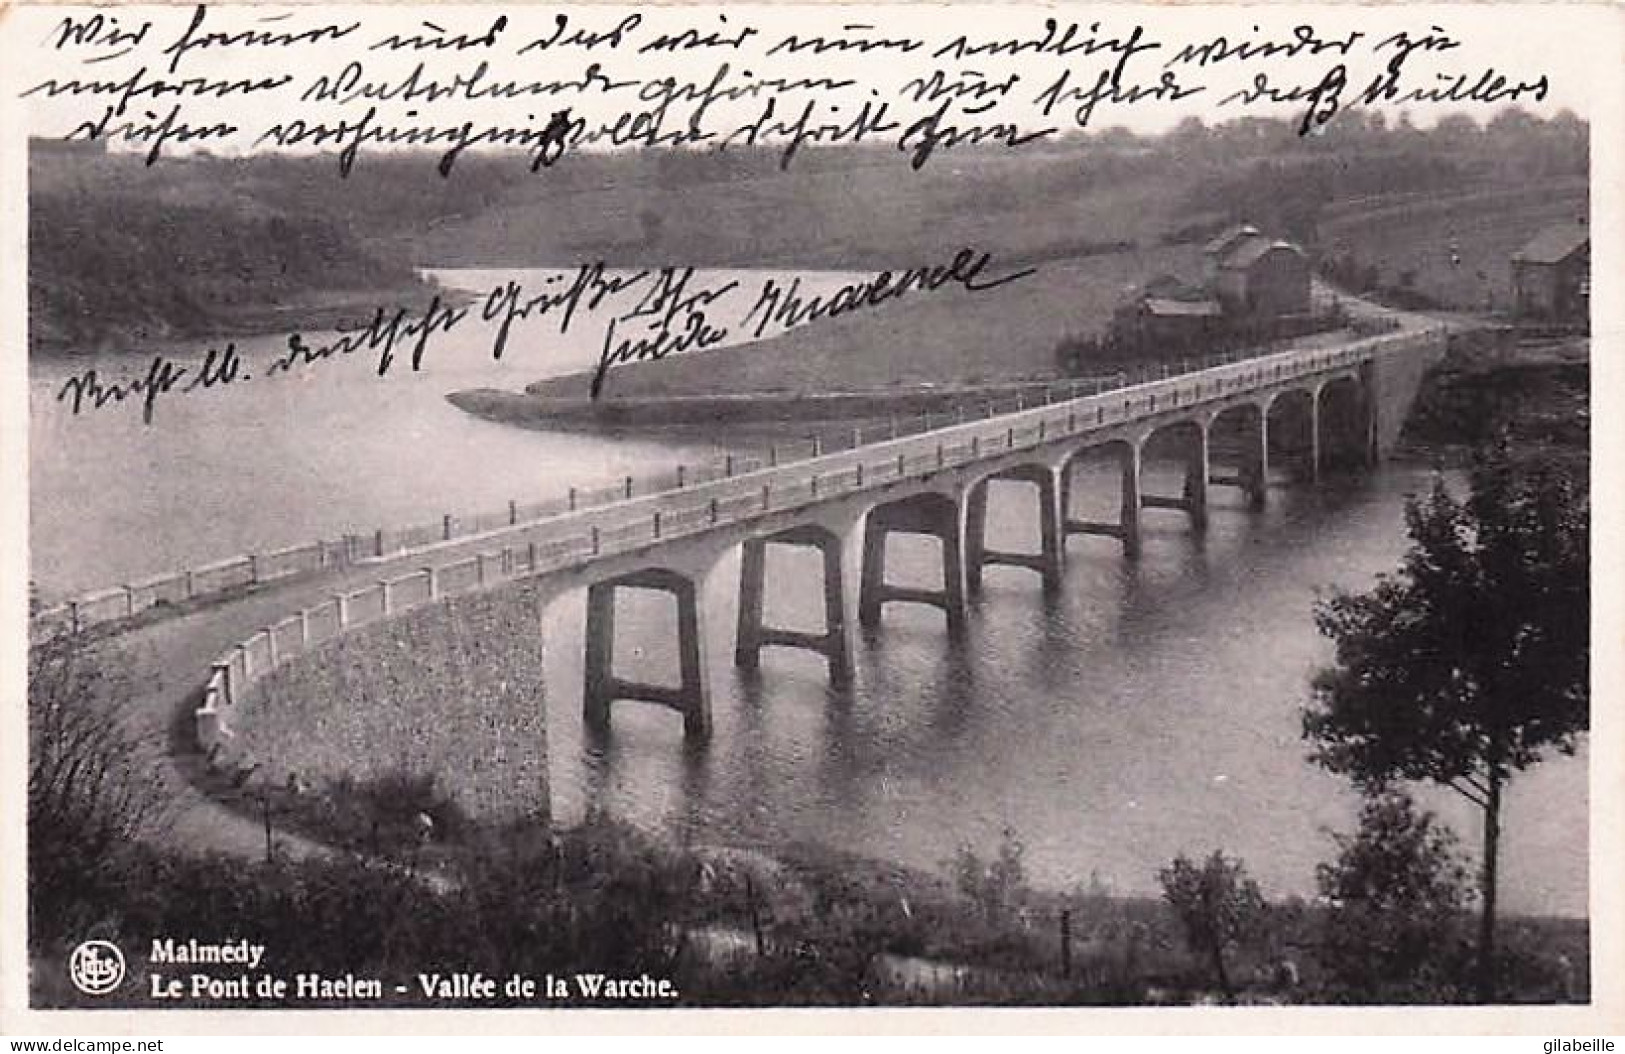 Wir freuen uns das wir nun endlich wieder zu
unserem Vaterlande gehören. Nur schade daß Müllers
diesen verhängnißvollen Schritt
Recht lb. deutsche Grüße Ihr
Malmédy
Le Pont de Haelen - Vallée de la Warche.
www.delcampe.net
gilabeille